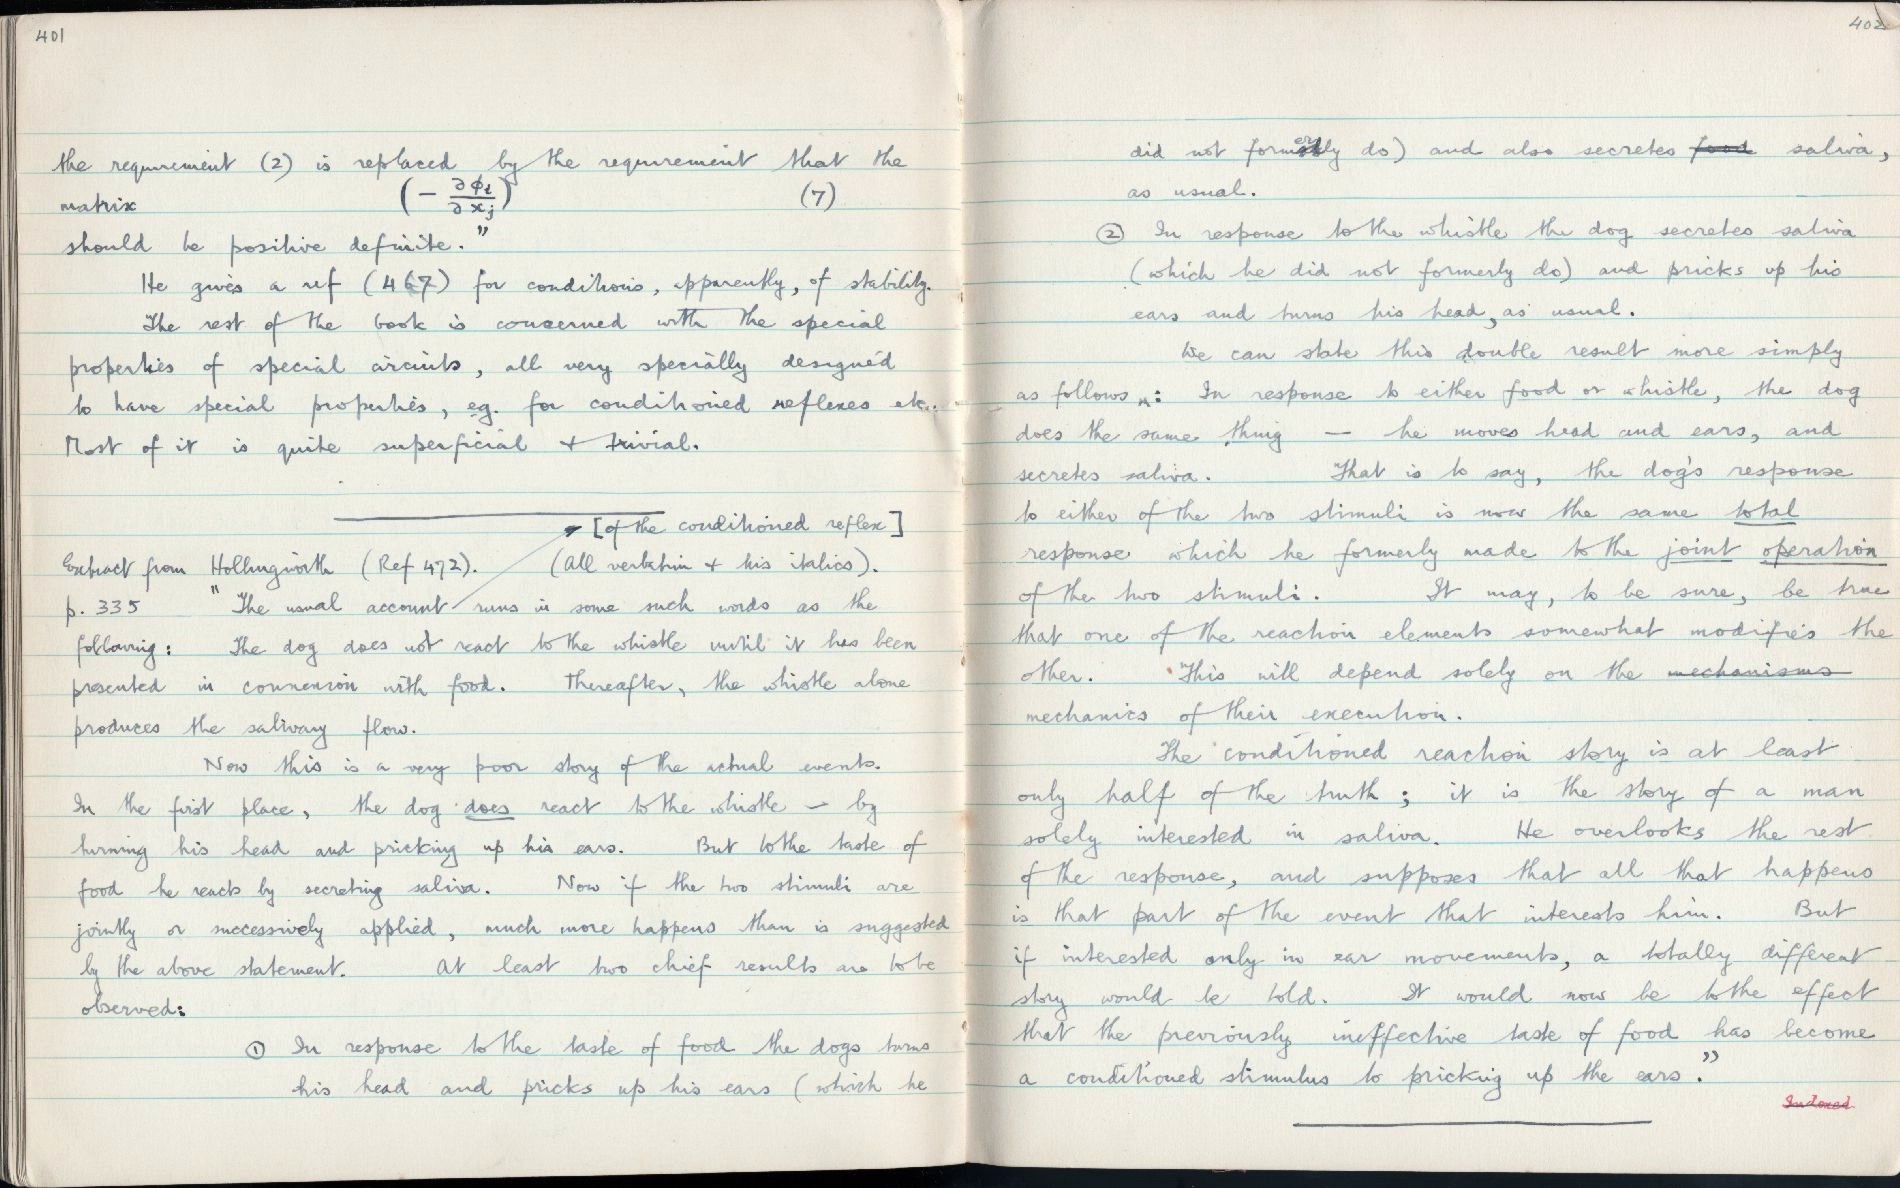 401
the requirement (2) is replaced by the requirement that the
matrix (- ∂φi/∂xj) (7)
should be positive definite."
He gives a ref (467) for conditions, apparently, of stability.
The rest of the book is concerned with the special
properties of special circuits, all very specially designed
to have special properties, eg. for conditioned reflexes etc.
Most of it is quite superficial & trivial.
[of the conditioned reflex]
Extract from Hollingworth (Ref 472). (All verbatim & his italics).
p. 335 "The usual account runs in some such words as the
following: The dog does not react to the whistle until it has been
presented in connexion with food. Thereafter, the whistle alone
produces the salivary flow.
Now this is a very poor story of the actual events.
In the first place, the dog does react to the whistle – by
turning his head and pricking up his ears. But to the taste of
food he reacts by secreting saliva. Now if the two stimuli are
jointly or successively applied, much more happens than is suggested
by the above statement. At least two chief results are to be
observed:
① In response to the taste of food the dogs turns
his head and pricks up his ears (which he
402
did not formerly do) and also secretes food saliva,
as usual.
② In response to the whistle the dog secretes saliva
(which he did not formerly do) and pricks up his
ears and turns his head, as usual.
We can state this double result more simply
as follows: In response to either food or whistle, the dog
does the same thing – he moves head and ears, and
secretes saliva. That is to say, the dog's response
to either of the two stimuli is now the same total
response which he formerly made to the joint operation
of the two stimuli. It may, to be sure, be true
that one of the reaction elements somewhat modifies the
other. This will depend solely on the mechanisms
mechanics of their execution.
The conditioned reaction story is at least
only half of the truth; it is the story of a man
solely interested in saliva. He overlooks the rest
of the response, and supposes that all that happens
is that part of the event that interests him. But
if interested only in ear movements, a totally different
story would be told. It would now be to the effect
that the previously ineffective taste of food has become
a conditioned stimulus to pricking up the ears."
Indexed